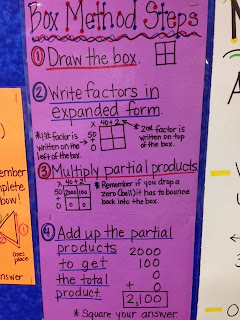 Box Method Steps
① Draw the box.
② Write factors in
expanded form.
*1st factor is
written on the
left of the box.
x 40+2
50
+
0
*2nd factor is
written on top
of the box.
③ Multiply partial products
x 40+2
50 2000 100
+
0 0 0
* Remember if you drop a
zero (ball) it has to bounce
back into the box.
④ Add up the partial
products
to get
the total
product.
2000
100
0
+ 0
2,100
* Square your answer.
member
plete
bow!
ones
place
answer